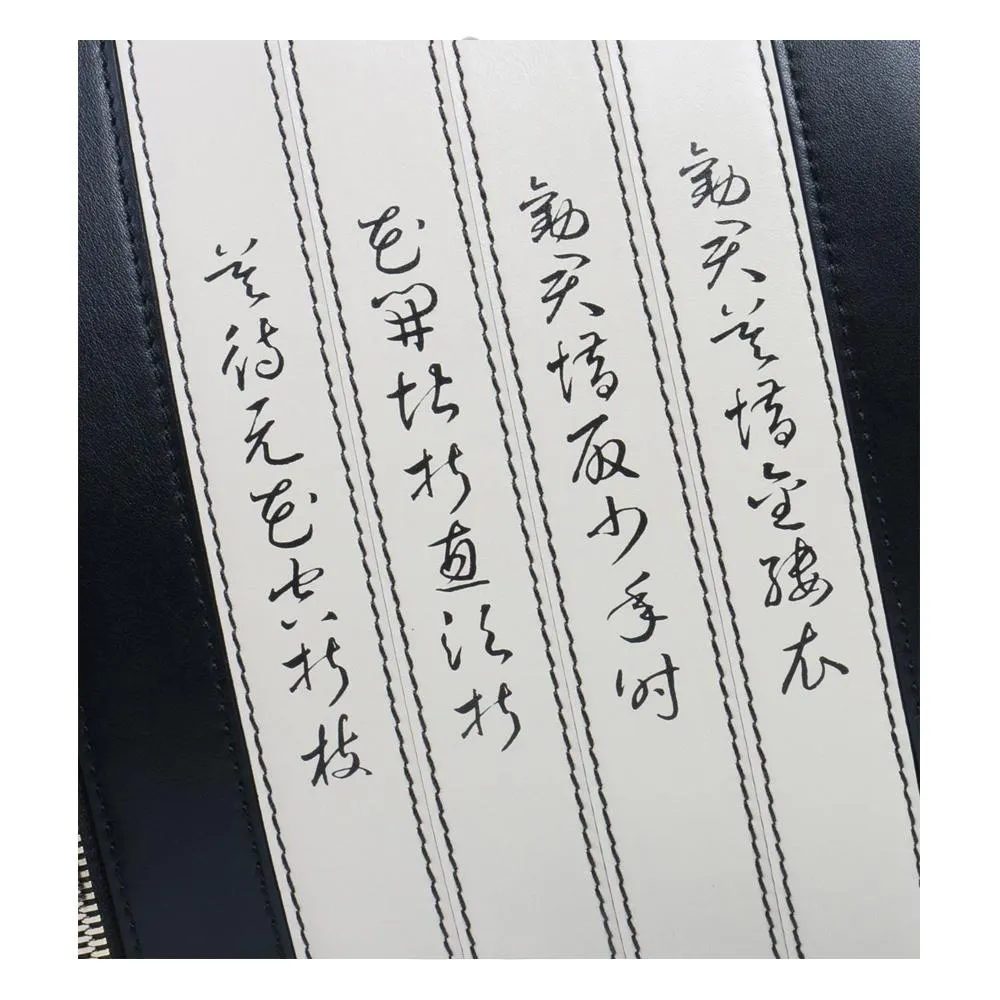 勸君莫惜金縷衣
勸君惜取少年時
花開堪折直須折
莫待无花空折枝